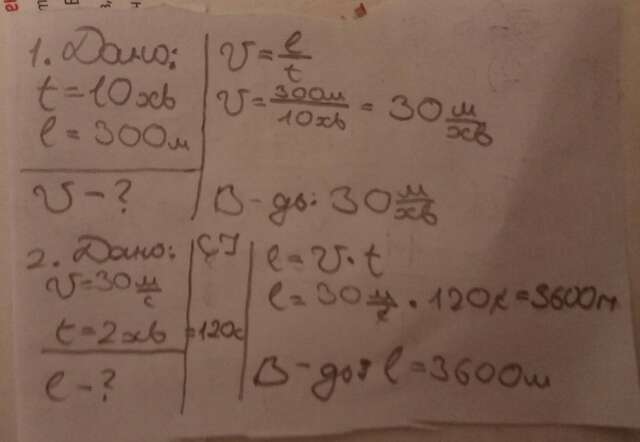 1. Дано:
t = 10 хв
l = 300 м
V - ?
V = l/t
V = 300м/10хв = 30 м/хв
В-дь: 30 м/хв
2. Дано:
V = 30 м/с
t = 2 хв
l - ?
СІ
= 120с
l = V · t
l = 30 м/с · 120с = 3600м
В-дь: l = 3600м